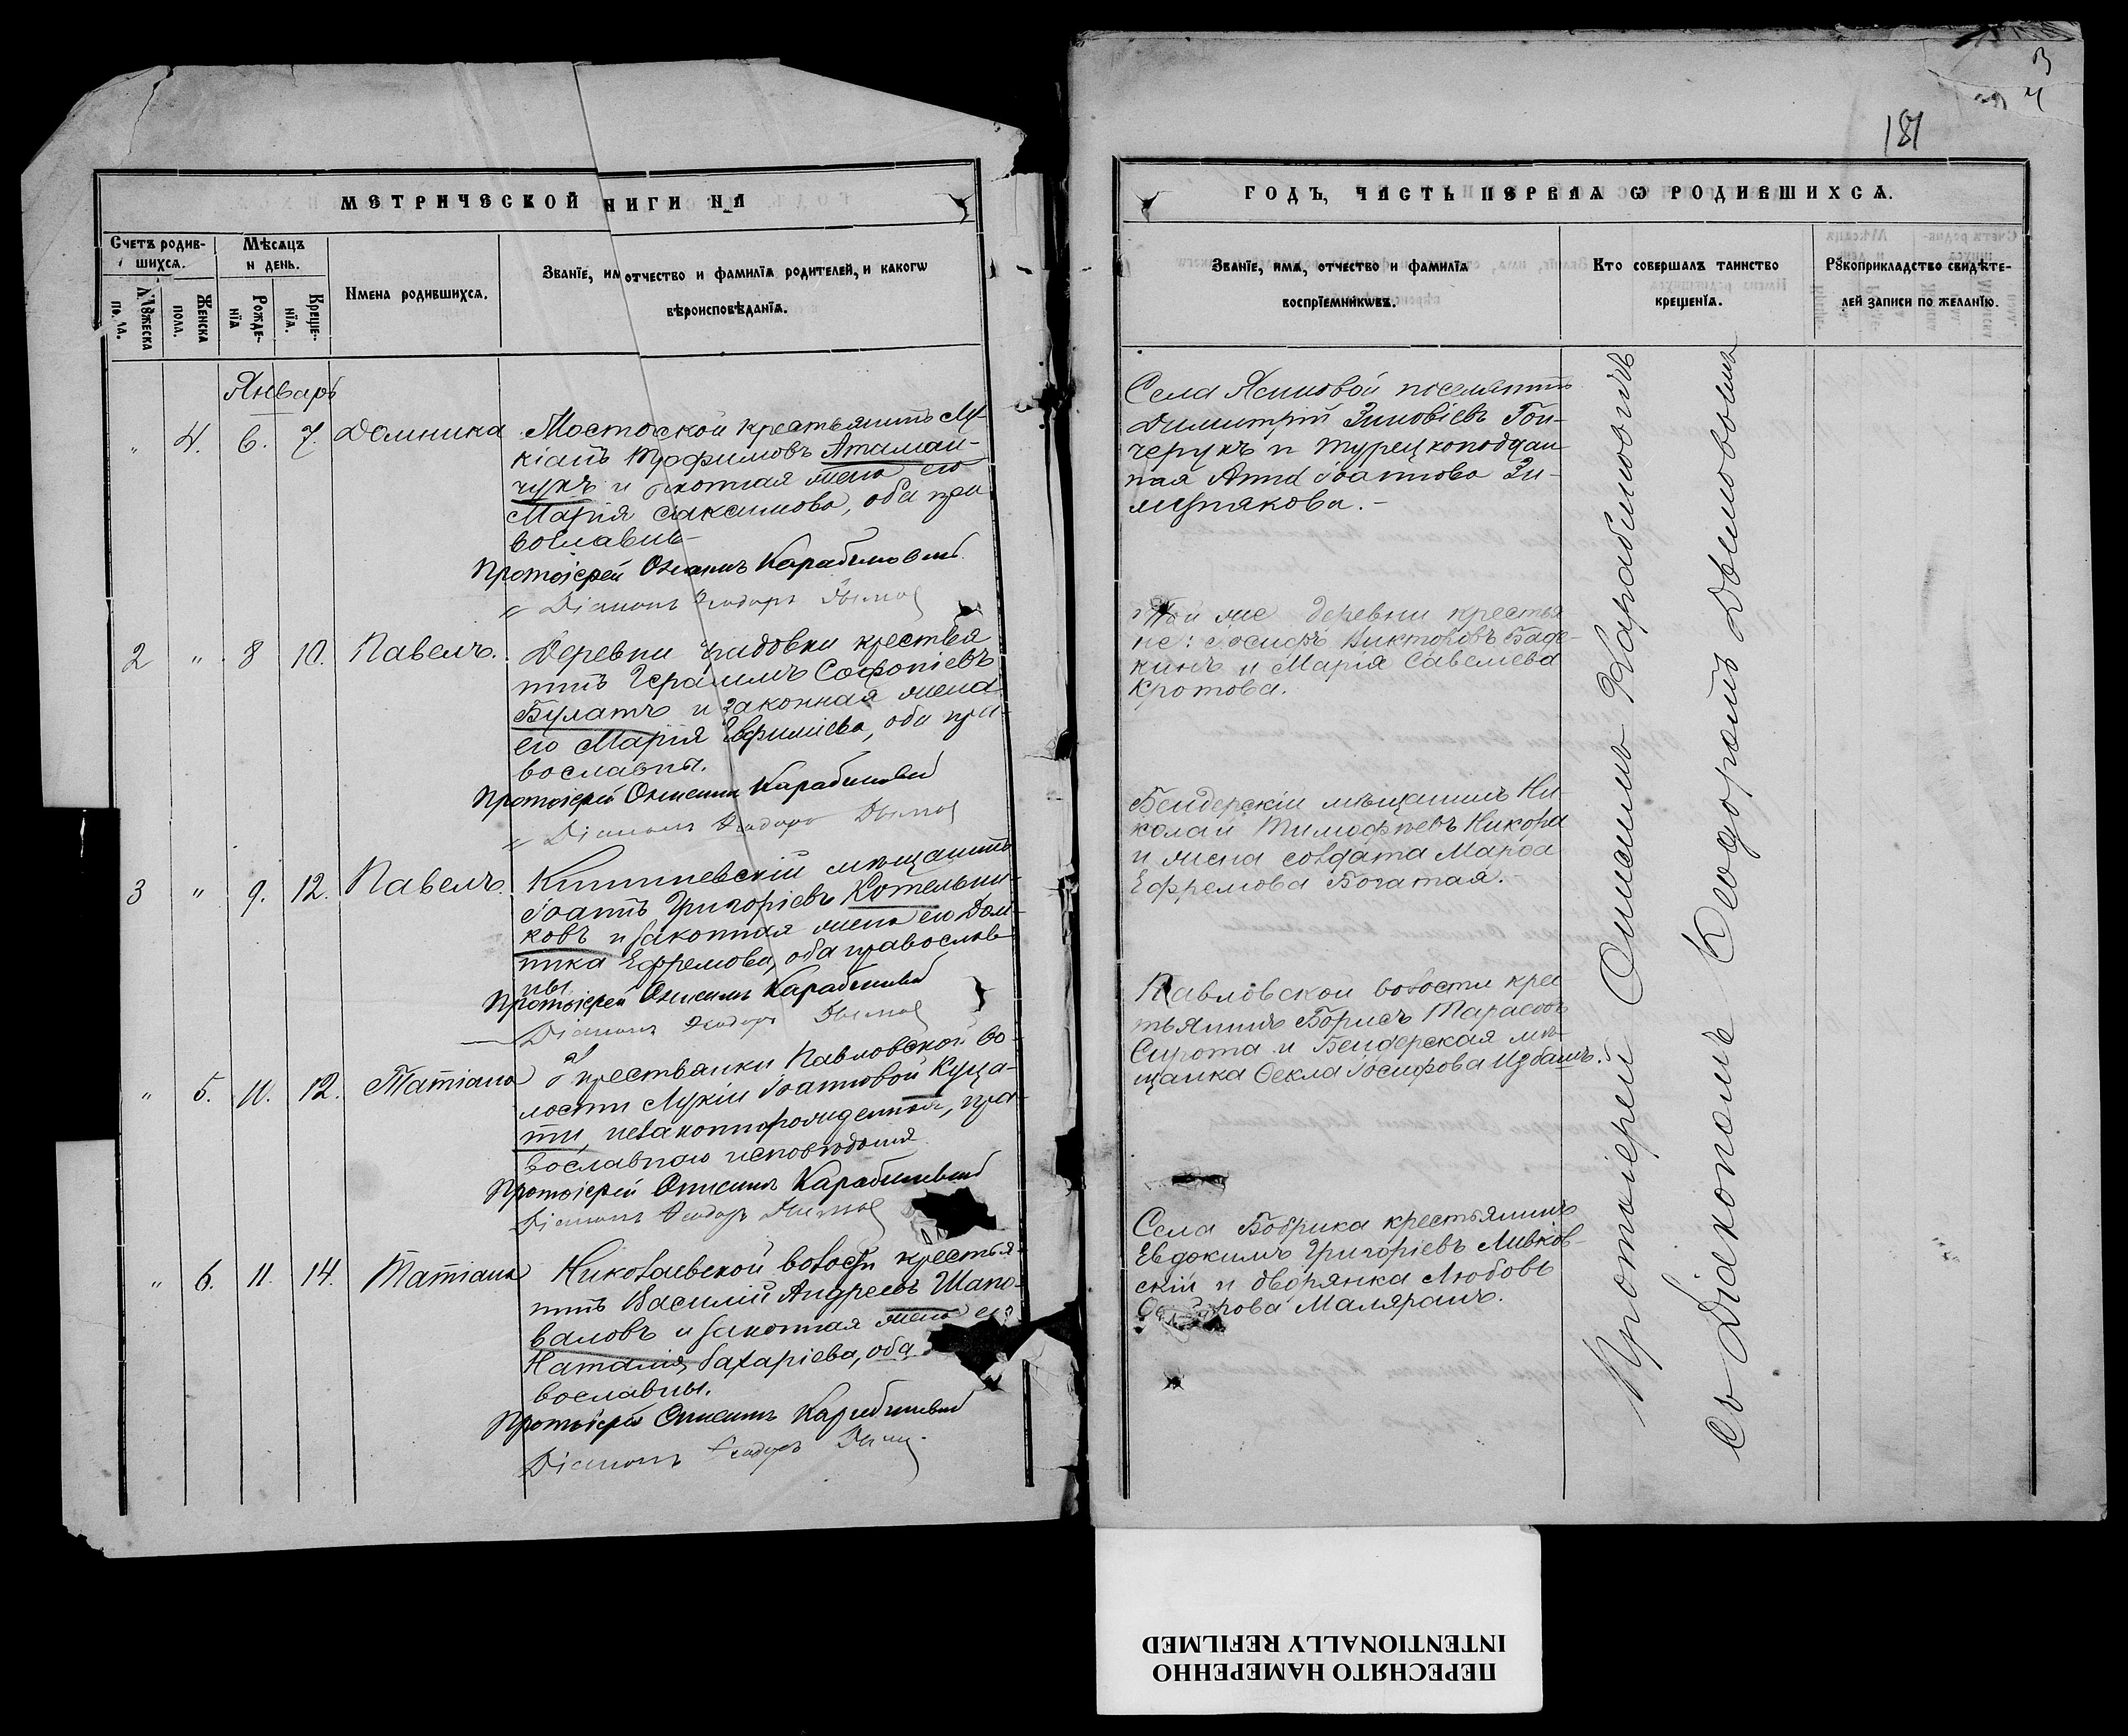 МЕТРИЧЕСКОЙ НИГИ НА
Счетъ родив-
шихсѧ.
Мѣсѧцъ
и день.
Имена родившихсѧ.
Званїе, им отчество и фамилїѧ родителей, и какогѡ
вѣроисповѣданїѧ.
Мꙋжеска
пола.
Женска
пола.
Рожде-
нїѧ
Креще-
нїѧ.
Январь
" 4. 6. 7. Домника
Мостовской крестьянинъ Лу-
кіанъ Трофимовъ Атаман-
чукъ и законная жена его
Марія Максимова, оба пра
вославны
Протоіерей Онисимъ Карабиновичъ
Діаконъ Ѳеодоръ Дымов
2 " 8 10. Павелъ.
Деревни крестья
нинъ Герасимъ Софоніевъ
Булатъ и законная жена
его Марія Евфиміева, оба пра-
вославны.
Протоіерей Онисимъ Карабиновичъ
Діаконъ Ѳеодоръ Дымов
3 " 9. 12. Павелъ.
Кишиневскій мѣщанинъ
Іоаннъ Григоріевъ Котельни-
ковъ и законная жена его Дом-
ника Ефремова, оба православ-
ны
Протоіерей Онисимъ Карабиновичъ
Діаконъ Ѳеодоръ Дымов
" 5. 11. 12. Татіана
У крестьянки Павловской во-
лости Лукіи Іоанновой Куца-
ти, незаконнорожденная, пра-
вославнаго исповѣданія
Протоіерей Онисимъ Карабиновичъ
Діаконъ Ѳеодоръ Дымов
" 6. 11. 14. Татіана
Николаевской волости крестья-
нинъ Василій Андреевъ Шапо-
валовъ и законная жена его
Наталія Захаріева, оба
вославны.
Протоіерей Онисимъ Карабиновичъ
Діаконъ Ѳеодоръ
3
4
181
ГОДЪ, ЧАСТЬ ПЕРВАѦ Ѡ РОДИВШИХСѦ.
Званїе, имѧ, отчество и фамилїѧ
воспрїемникѡвъ.
Кто совершалъ таинство
крещенїѧ.
Рꙋкоприкладство свидѣте-
лей записи по желанїю.
Села Ясиновой поселянинъ
Димитрій Зиновіевъ Гон-
черукъ и турецкоподдан-
ная Анна Іоаннова Зи-
мулякова.
Той же деревни крестья
не: Іосифъ Викторовъ Баде-
кинъ и Марія Савелиева
Кротова.
Бендерскій мѣщанинъ Ни-
колай Тимофѣевъ Никора
и жена солдата Марѳа
Ефремова Богатая.
Павловской волости крес
тьянинъ Борисъ Тарасовъ
Сирота и Бендерская мѣ-
щанка Ѳекла Іосифова Избашъ.
Села Бобрика крестьянинъ
Евдокимъ Григоріевъ Ливков-
скій и дворянка Любовь
рова Малярашъ.
Протоіерей Онисимъ Карабиновичъ
съ Діакономъ Ѳеодоромъ Дымовымъ
ПЕРЕСНЯТО НАМЕРЕННО
INTENTIONALLY REFILMED